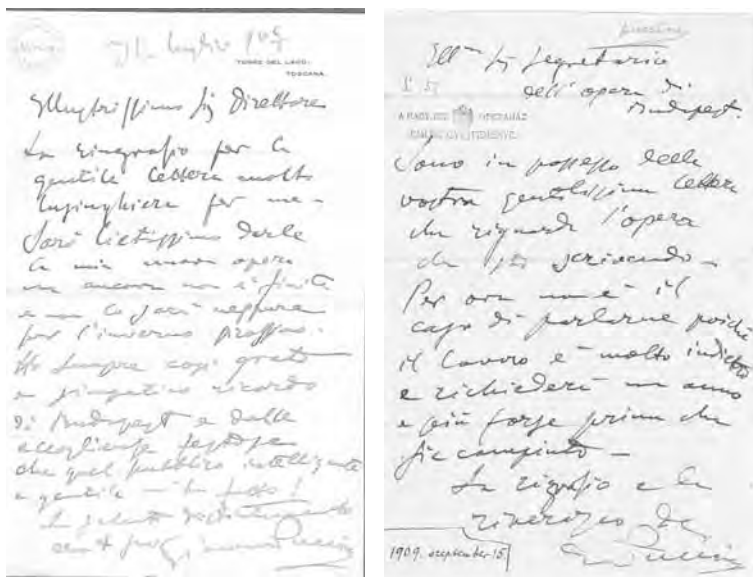 luglio 909
TORRE DEL LAGO,
TOSCANA.
Illustrissimo Sig Direttore
La ringrazio per la
gentile lettera molto
lusinghiera per me –
Sarò lietissimo darle
la mia nuova opera
ma ancora non è finita
e non lo sarà neppure
per l'inverno prossimo.
Ho sempre così grato
e simpatico ricordo
di Budapest e delle
accoglienze festose
che quel pubblico intelligente
e gentile mi ha fatto!
La saluto
Giacomo Puccini
Ill^mo Sig Segretario
dell'opera di
Budapest.
Sono in possesso della
vostra gentilissima lettera
che riguarda l'opera
che sto scrivendo –
Per ora non è il
caso di parlarne poiché
il lavoro è molto indietro
e richiederà un anno
e più forse prima che
sia compiuto –
La ringrazio e la
riverisco
G Puccini
1909. szeptember 15.